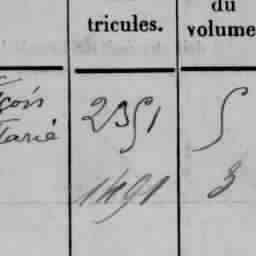 du
tricules. volume
çois 2351 5
Marie
1491 3